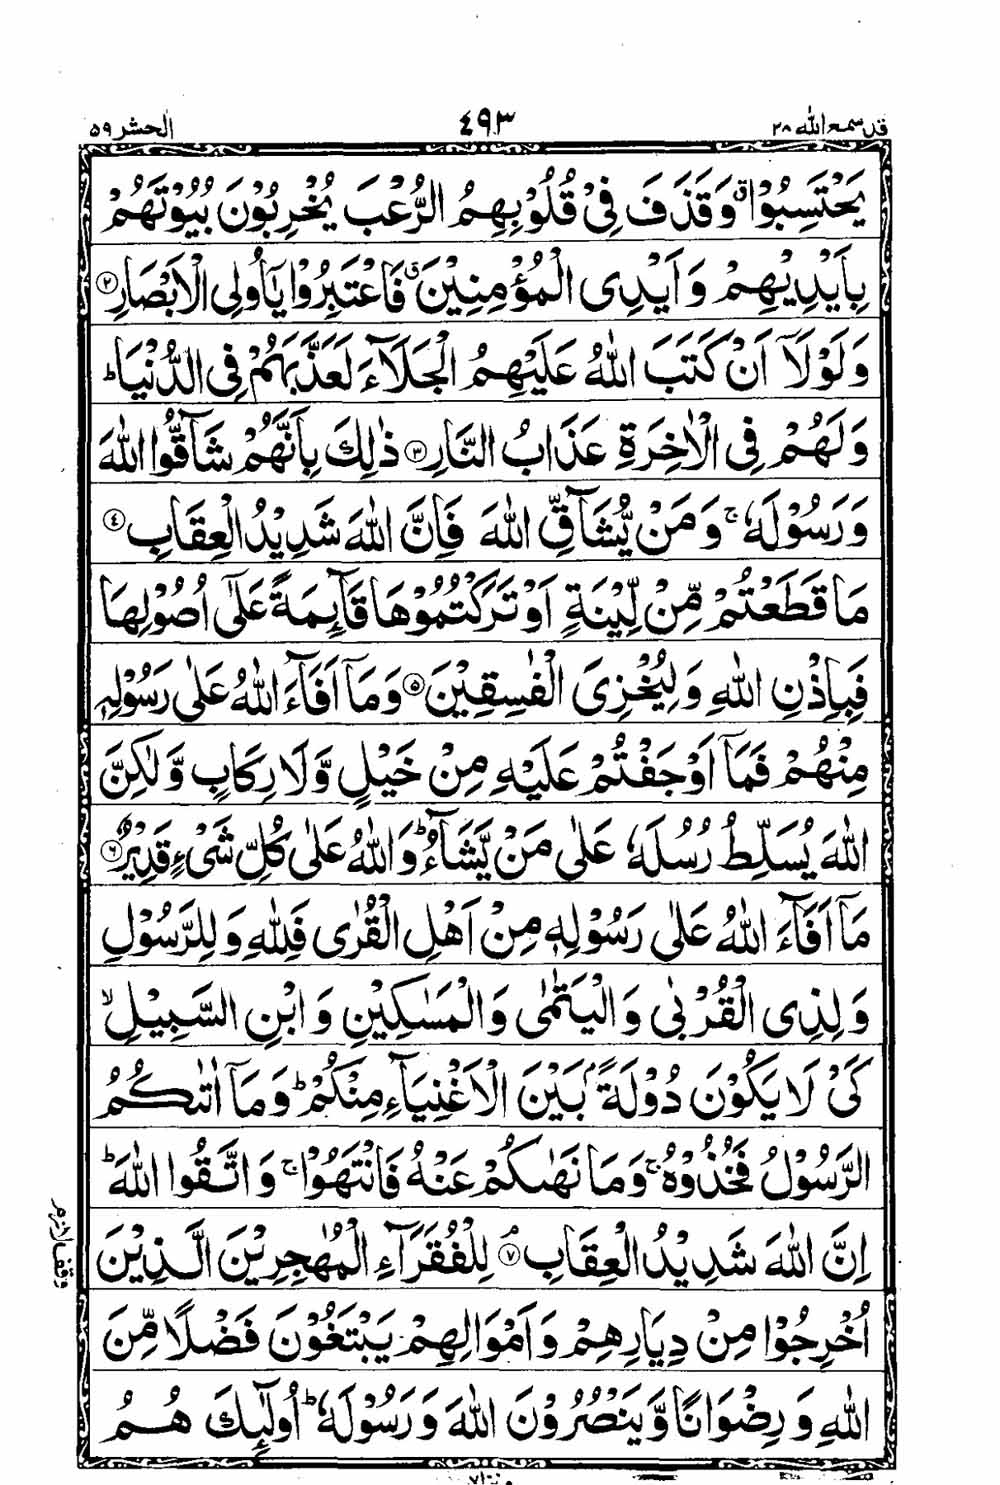 قد سمع الله ۲۸ ٤٩٣ الحشر ٥٩
يَحْتَسِبُوْا ۗ وَقَذَفَ فِيْ قُلُوْبِهِمُ الرُّعْبَ يُخْرِبُوْنَ بُيُوْتَهُمْ
بِاَيْدِيْهِمْ وَاَيْدِى الْمُؤْمِنِيْنَ ۗ فَاعْتَبِرُوْا يٰٓاُولِى الْاَبْصَارِ ۝٢
وَلَوْلَآ اَنْ كَتَبَ اللّٰهُ عَلَيْهِمُ الْجَلَآءَ لَعَذَّبَهُمْ فِى الدُّنْيَا ؕ
وَلَهُمْ فِى الْاٰخِرَةِ عَذَابُ النَّارِ ۝٣ ذٰلِكَ بِاَنَّهُمْ شَآقُّوا اللّٰهَ
وَرَسُوْلَهٗ ۚ وَمَنْ يُّشَآقِّ اللّٰهَ فَاِنَّ اللّٰهَ شَدِيْدُ الْعِقَابِ ۝٤
مَا قَطَعْتُمْ مِّنْ لِّيْنَةٍ اَوْ تَرَكْتُمُوْهَا قَآئِمَةً عَلٰٓى اُصُوْلِهَا
فَبِاِذْنِ اللّٰهِ وَلِيُخْزِىَ الْفٰسِقِيْنَ ۝٥ وَمَآ اَفَآءَ اللّٰهُ عَلٰى رَسُوْلِهٖ
مِنْهُمْ فَمَآ اَوْجَفْتُمْ عَلَيْهِ مِنْ خَيْلٍ وَّلَا رِكَابٍ وَّلٰكِنَّ
اللّٰهَ يُسَلِّطُ رُسُلَهٗ عَلٰى مَنْ يَّشَآءُ ؕ وَاللّٰهُ عَلٰى كُلِّ شَىْءٍ قَدِيْرٌ ۝٦
مَآ اَفَآءَ اللّٰهُ عَلٰى رَسُوْلِهٖ مِنْ اَهْلِ الْقُرٰى فَلِلّٰهِ وَلِلرَّسُوْلِ
وَلِذِى الْقُرْبٰى وَالْيَتٰمٰى وَالْمَسٰكِيْنِ وَابْنِ السَّبِيْلِ ۙ
كَىْ لَا يَكُوْنَ دُوْلَةًۢ بَيْنَ الْاَغْنِيَآءِ مِنْكُمْ ؕ وَمَآ اٰتٰىكُمُ
الرَّسُوْلُ فَخُذُوْهُ ۚ وَمَا نَهٰىكُمْ عَنْهُ فَانْتَهُوْا ۚ وَاتَّقُوا اللّٰهَ ؕ
اِنَّ اللّٰهَ شَدِيْدُ الْعِقَابِ ۝٧ ۘ لِلْفُقَرَآءِ الْمُهٰجِرِيْنَ الَّذِيْنَ
وقف لازم
اُخْرِجُوْا مِنْ دِيَارِهِمْ وَاَمْوَالِهِمْ يَبْتَغُوْنَ فَضْلًا مِّنَ
اللّٰهِ وَرِضْوَانًا وَّيَنْصُرُوْنَ اللّٰهَ وَرَسُوْلَهٗ ؕ اُولٰٓئِكَ هُمُ